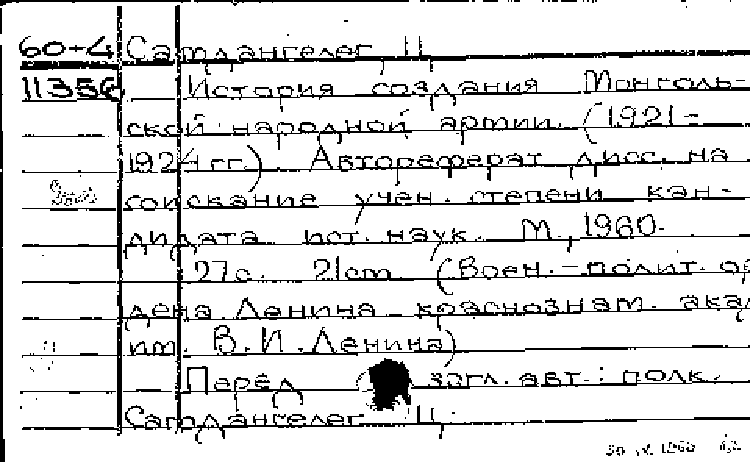 60-4 Сагдангелег, Ц.
11356 История создания Монголь-
ской народной армии. (1921-
1924 гг.) Автореферат дисс. на
соискание учен. степени кан-
дидата ист. наук. М., 1960.
27 с. 21 cm. (Воен.-полит. ор
дена Ленина краснознам. акад
им. В.И. Ленина)
Перед загл. авт.: полк.
Сагдангелег Ц.